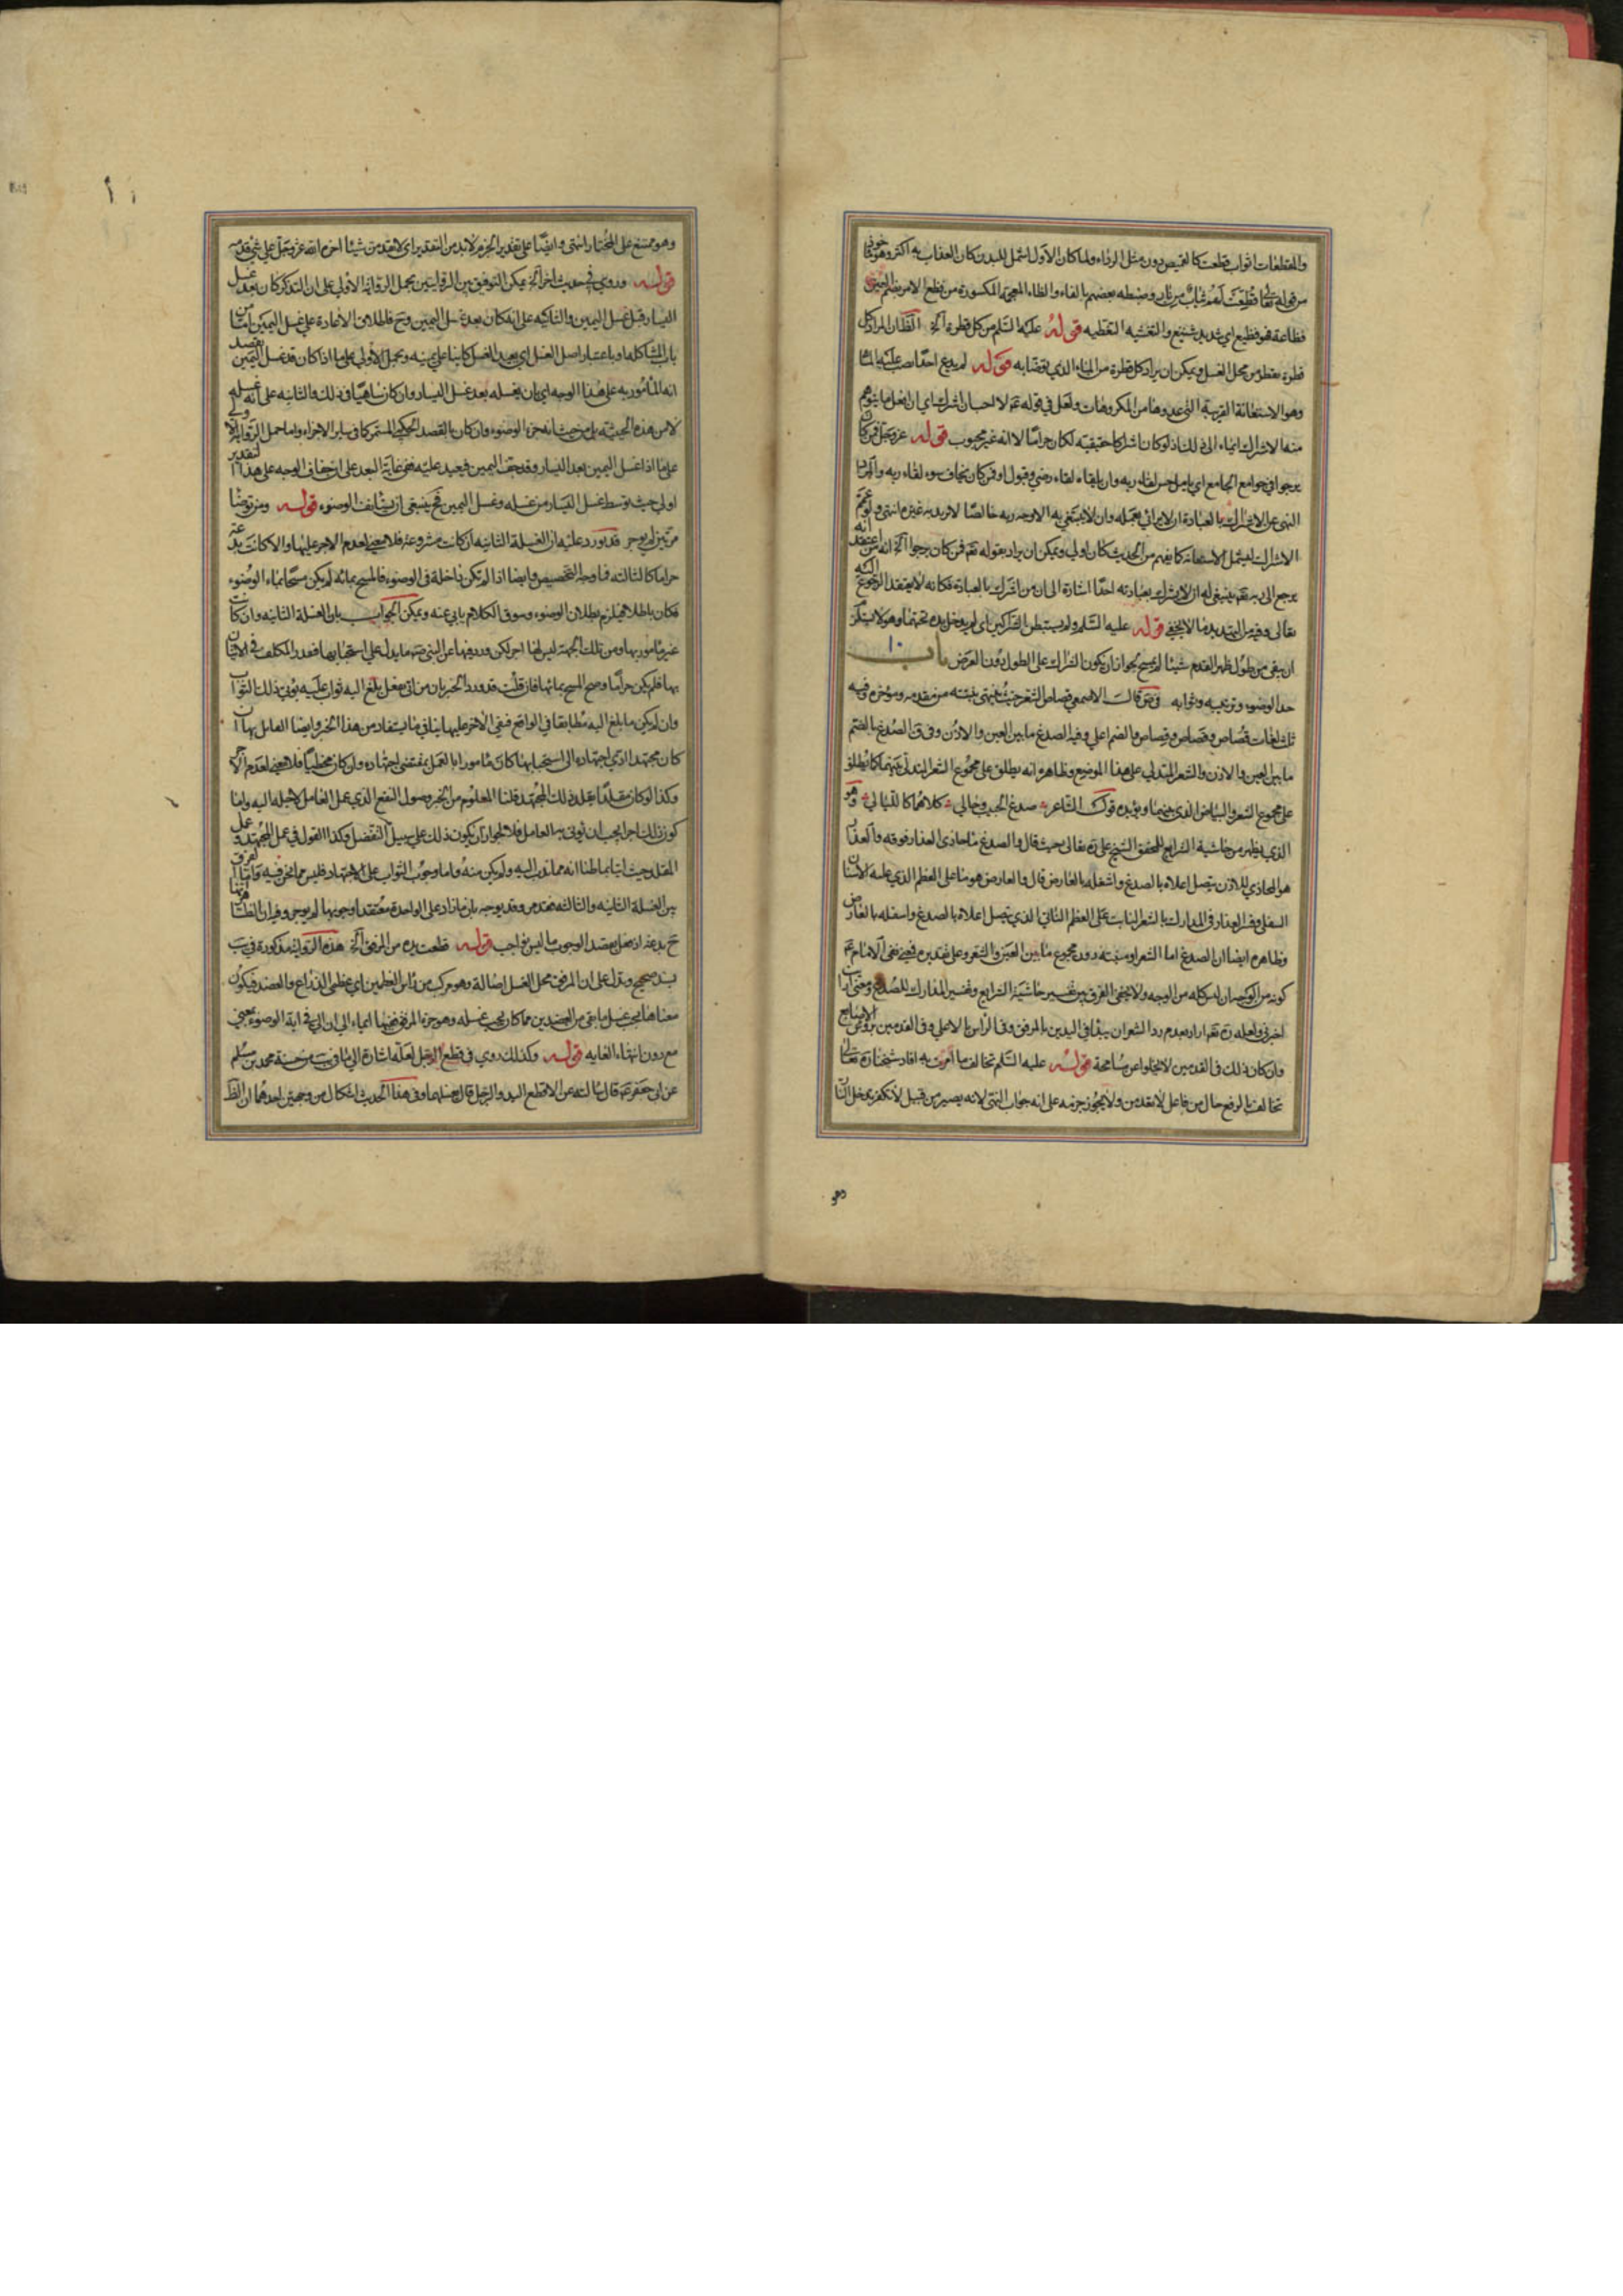 والمقطعات اثواب قطعت كالقميص دون مثل الرداء ولما كان الاول اشمل للبدن كان العذاب به اكثر وهو مأخوذ
من قوله تعالى قُطِّعَتْ لَهُمْ ثِيَابٌ مِنْ نَارٍ وضبطه بعضهم بالفاء والظاء المعجمة المكسورة من فظع الامر بضم العين
فظاعة فهو فظيع اي شديد شنيع والتغشيه التغطيه قوله عليه السّلم من كل قطرة آلخ الظّان المراد كل
قطرة تقطر من محل الغسل ويمكن ان يراد كل قطرة من الماء الذي توضا به قوله لم يدع احدًا يصب عليه الماء
وهو الاستعانة القريبة التي عدوها من المكروهات ولعل في قوله عم لا احب ان اشرك اي ان افعل ما يتوهم
منه الاشراك ايماء الى ذلك اذ لو كان اشراكا حقيقيه لكان حرامًا لا انه غير محبوب قوله عز وجل فمن كان
يرجوا في جوامع الجامع اي يامل حسن لقاء ربه وان يلقاه لقاء رضي وقبول او فمن كان يخاف سوء لقاء ربه والمراد
النهى عن الاشراك بالعبادة ان لا يرائي بعمله وان لا يبتغي به الا وجه ربه خالصًا لا يريد به غيره انتهى ولو عمّم
الاشراك ليشمل الاستعانة كما يفهم من الحديث كان اولى ويمكن ان يراد بقوله تعم فمن كان يرجوا آلخ انه من اعتقد انه
يرجع الى ربه تعم ينبغي له ان لا يشرك بعبادته احدًا اشارة الى ان من اشرك بالعبادة فكانه لا يعتقد الرجوع اليه
تعالى وفيه من التهديد ما لا يخفى قوله عليه السّلم ولم يستبطن الشراكين اى لم يدخل يده تحتهما وهو لا يستلزم
ان يبقى من طول ظهر القدم شيئا لم يمسح لجواز ان يكون الشراك على الطول دون العرض باب ١٠
حد الوضوء وترتيبه وثوابه في ص قالَ الاصمعي قصاص الشعر حيث ينتهي نبته من مقدمه ومؤخره وفيه
ثلث لغات قُصاص وقَصاص وقِصاص والضم اعلى وفيه الصدغ ما بين العين والاذن وفي ق الصُدغ بالضم
ما بين العين والاذن والشعر المتدلي على هذا الموضع وظاهره انه يطلق على مجموع الشعر المتدلي بينهما كما يطلق
على مجموع الشعر والبياض الذي بينهما ويؤيده قول الشاعر صدغ الحبيب وحالي كلاهما كالليالي وهو
الذي يظهر من حاشية الشرايع للمحقق الشيخ علي ره تعالى حيث قال والصدغ ما حاذى العذار فوقه والعذار
هو المحاذي للاذن يتصل اعلاه بالصدغ واسفله بالعارض قال والعارض هو ما على العظم الذي عليه الاسنان
السفلى وفسر العذار في المدارك بالشعر النابت على العظم الناتي الذي يتصل اعلاه بالصدغ واسفله بالعارض
وظاهره ايضا ان الصدغ اما الشعر او منبته دون مجموع ما بين العين والشعر وعلى تقديره فمعنى نفي الامام عم
كونه من الوجه ان ليس كله من الوجه ولا يخفى الفرق بين تفسير حاشية الشرايع وتفسير المدارك للصدغ ومعنى
اخرى ولعله ره تعم اراد بعدم رد الشعر ان يبدأ في اليدين بالمرفق وفي الرأس بالاعلى وفي القدمين برؤس الاصابع
وان كان ذلك في القدمين لا يخلوا عن مسامحة قوله عليه السّلم تخالف ما امرت به افاد شيخنا ره تعالى
تخالف بالرفع حال من فاعل لا تقدمن ولا يجوز جزمه على انه جواب النهي لانه يصير من قبيل لا تكفر تدخل النار
وهو
وهو ممتنع على المختار انتهى وايضًا على تقدير الجزم لا بد من التقدير اي لا تقدمن شيئا اخره الله عز وجل على شيء قدمه
قوله وروي في حديث اخر آلخ يمكن التوفيق بين الروايتين بحمل الرواية الاولى على ان التذكر كان بعد غسل
اليسار قبل غسل اليمين والثانيه على انه كان بعد غسل اليمين وح فاطلاق الاعادة على غسل اليمين اما من
باب المشاكلة او باعتبار اصل الغسل اي يعيد الغسل كاينا على يمينه ويحمل الاولى على ما اذا كان قد غسل اليمين بقصد
انه المأمور به على هذا الوجه اي بان يغسله بعد غسل اليسار وان كان ساهيًا في ذلك والثانيه على انه غسله
لا من هذه الحيثيه بل من حيث انه جزء الوضوء وان كان بالقصد الحكمي المستمر كما في سائر الاجزاء واما حمل الرواية الاولى
على ما اذا غسل اليمين بعد اليسار وقد جف اليمين فيعيد عليه ففي غاية البعد على ان جفاف الوجه على هذا التقدير
اولى حيث توسط غسل اليسار من غسله وغسل اليمين فح ينبغي ان يستأنف الوضوء قوله ومن توضأ
مرتين لم يوجر قد يورد عليه ان الغسلة الثانيه ان كانت مشروعه فلا معنى لعدم الاجر عليها والا كانت بدعة
حراما كالثالثه فما وجه التخصيص وايضا اذا لم تكن داخلة في الوضوء فالمسح بمائه لم يكن مسحًا بماء الوضوء
فكان باطلا فيلزم بطلان الوضوء وسوق الكلام يابى عنه ويمكن الجواب بان الغسلة الثانيه وان كانت
غير مأمور بها ومن تلك الجهة ليس لها اجر لكن ورد فيها عن النبي صم ما يدل على استحبابها فعذر المكلف في الاتيان
بها فلم يكن حرامًا وصح المسح بمائها فان قلت قد ورد الخبر بان من اتى بفعل بلغ اليه ثواب عليه يؤتى ذلك الثواب
وان لم يكن ما بلغ اليه مطابقا في الواقع فنفي الاجر عليها ينافي ما يستفاد من هذا الخبر وايضا العامل بها ان
كان مجتهدا ادى اجتهاده الى استحبابها كان مأمورا بالعمل بمقتضى اجتهاده وان كان مخطئًا فلا معنى لعدم الاجر
وكذا لو كان مقلدًا يقلد ذلك المجتهد قلنا المعلوم من الخبر وصول النفع الذي عمل العامل لاجله اليه واما
كون ذلك اجرا يجب ان يؤتى به العامل فلا لجواز ان يكون ذلك على سبيل التفضل وكذا القول في عمل المجتهد وعمل
المقلد حيث اتيا بما ظنا انه مما ندب اليه ولم يكن منه واما وجوب الثواب على الاجتهاد فليس مما نحن فيه واما الفرق
بين الغسلة الثانيه والثالثه وقد يوجه بان ما زاد على الواحدة معتقدا وجوبها لم يوجر وفيه ان الظ انها
ح بدعه اذ فعل بقصد الوجوب ما ليس بواجب قوله قطعت يده من المرفق آلخ هذه الرواية مذكورة في يب
بسند صحيح ويدل على ان المرفق محل الغسل اصالة وهو مركب من رأس العظمين اي عظمي الذراع والعضد فيكون
معناها يجب غسل ما بقى من العضد بين مما كان يجب غسله وهو جزء المرفق ففيها ايماء الى ان الى في اية الوضوء بمعنى
مع دون انتهاء الغايه قوله وكذلك روي في قطع الرجل لعله اشارة الى ما في يب من حسنة محمد بن مسلم
عن ابي جعفر عم قال سالته عن الاقطع اليد والرجل قال يغسلهما وفي هذا الحديث اشكال من وجهين احدهما ان الظ